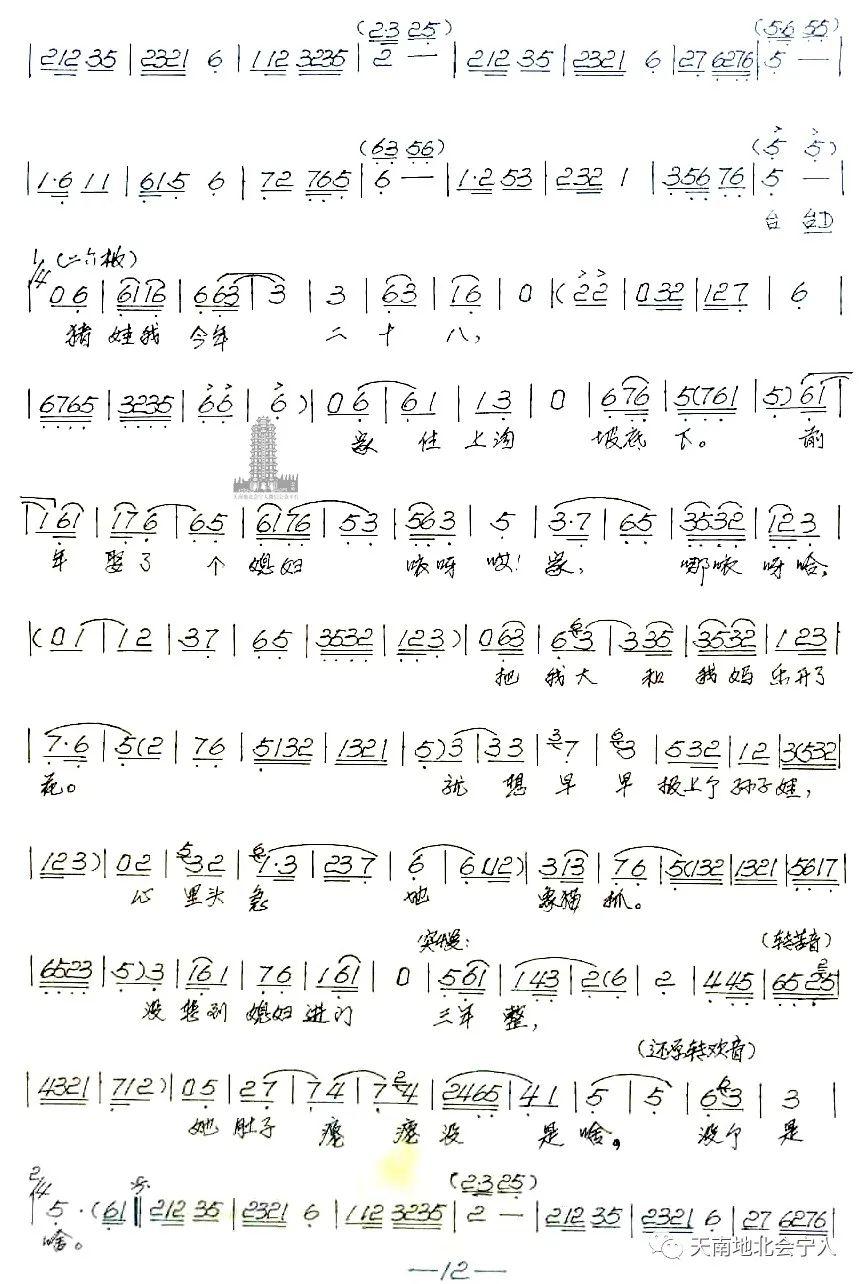 (2·3 25) (5·6 55)
|212 35|2321 6|112 3235|2 —|212 35|2321 6|27 6276|5 —|
(63 56) (5 5)
|1·6 11|61·5 6|72 765|6 —|1·2 53|232 1|35676|5 —|
台 台D
1/4 (二六板)
|06|6116|663|3|3|63|16|0|(22|032|127|6|
猪娃我今年 二十八,
|6765|3235|66|6)|06|61|13|0|676|5(761|5)61|
家住上沟 坡底下。 前
|161|176|65|6176|53|563|5|3·7|65|3532|123|
年娶了个媳妇 咳呀哎!家, 哪咳呀哈,
|(01|12|37|65|3532|123)|063|63|335|3532|123|
把我大和我妈乐开了
|7·6|5(2|76|5132|1321|5)3|33|7|3|532|12|3(532|
花。 就想早早报上个孙子娃,
|123)|02|32|1·3|237|6|6(12)|313|76|5(132|1321|5617|
心里头急 地 象猫抓。
突慢: (转苦音)
|6523|5)3|161|76|161|0|561|143|2(6|2|445|6525|
没想到媳妇进门 三年整,
(还原转欢音)
|4321|712)|05|27|74|74|2465|41|5|5|63|3|
她肚子瘪瘪没是啥, 没个是
(2·3 25)
2/4 |5·(61‖212 35|2321 6|112 3235|2 —|212 35|2321 6|27 6276|
啥。
天南地北会宁人
—12—